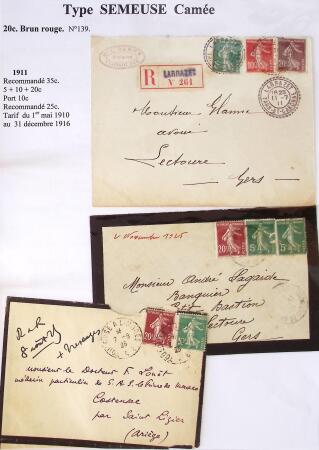 Type SEMEUSE Camée
20c. Brun rouge. N°139.
1911
Recommandé 35c.
5 + 10 + 20c
Port 10c
Recommandé 25c.
Tarif du 1er mai 1910
au 31 décembre 1916
R
LARRAZET
N° 261
LARRAZET
Monsieur
avoué
Lectoure
Gers
4 Novembre 1925
Monsieur André Lagaide
Banquier
Bastion
Lectoure
Gers
Monsieur le Docteur F. Louët
médecin particulier de S.A.S. le Prince de Monaco
par Saint Lizier
(Ariège)